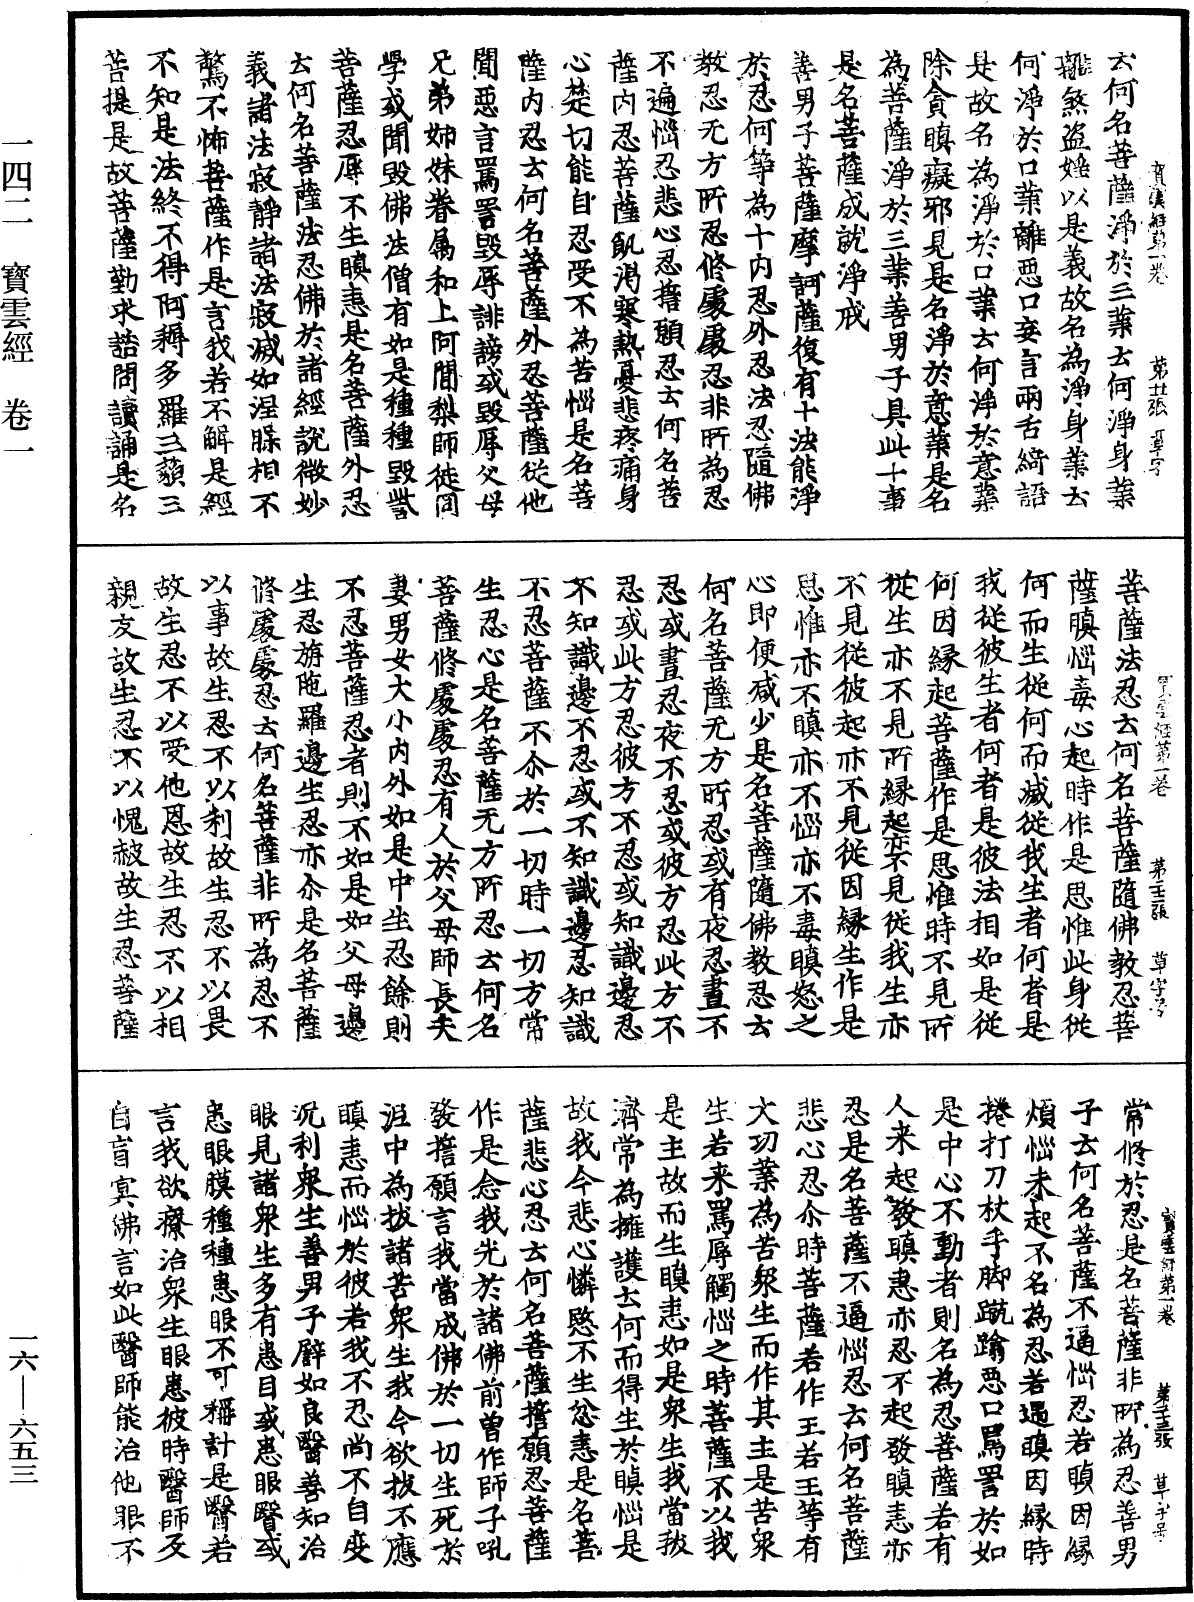 一四二 寶雲經 卷一
一六—六五三
云何名菩薩淨於三業去何淨身業
離煞盜婬以是義故名為淨身業去
何淨於口業離惡口妄言兩舌綺語
是故名為淨於口業去何淨於意業
除貪瞋癡邪見是名淨於意業是名
為菩薩淨於三業善男子具此十事
是名菩薩成就淨戒
善男子菩薩摩訶薩復有十法能淨
於忍何等為十內忍外忍法忍隨佛
教忍无方所忍修處處忍非所為忍
不逼惱忍悲心忍擔願忍去何名菩
薩內忍菩薩飢渴寒熱憂悲疼痛身
心楚切能自忍受不為苦惱是名菩
薩內忍去何名菩薩外忍菩薩從他
聞惡言罵詈毀辱誹謗或毀辱父母
兄弟姊妹眷屬和上阿闍梨師徒同
學或聞毀佛法僧有如是種種毀呰
菩薩忍辱不生瞋恚是名菩薩外忍
去何名菩薩法忍佛於諸經說微妙
義諸法寂靜諸法寂滅如涅槃相不
驚不怖菩薩作是言我若不解是經
不知是法終不得阿耨多羅三藐三
菩提是故菩薩勤求諮問讀誦是名
菩薩法忍去何名菩薩隨佛教忍菩
薩瞋惱毒心起時作是思惟此身從
何而生從何而滅從我生者何者是
我從彼生者何者是彼法相如是從
何因緣起菩薩作是思惟時不見所
從生亦不見所緣起亦不見從我生亦
不見從彼起亦不見從因緣生作是
思惟亦不瞋亦不惱亦不毒瞋怒之
心即便減少是名菩薩隨佛教忍去
何名菩薩无方所忍或有夜忍晝不
忍或晝忍夜不忍或彼方忍此方不
忍或此方忍彼方不忍或知識邊忍
不知識邊不忍或不知識邊忍知識
不忍菩薩不尒於一切時一切方常
生忍心是名菩薩无方所忍去何名
菩薩修處處忍有人於父母師長夫
妻男女大小內外如是中生忍餘則
不忍菩薩忍者則不如是如父母邊
生忍旃陁羅邊生忍亦尒是名菩薩
修處處忍去何名菩薩非所為忍不
以事故生忍不以利故生忍不以畏
故生忍不以受他恩故生忍不以相
親友故生忍不以愧赧故生忍菩薩
常修於忍是名菩薩非所為忍善男
子去何名菩薩不逼惱忍若瞋因緣
煩惱未起不名為忍若遇瞋因緣時
捲打刀杖手脚蹴蹹惡口罵詈於如
是中心不動者則名為忍菩薩若有
人来起發瞋恚亦忍不起發瞋恚亦
忍是名菩薩不逼惱忍去何名菩薩
悲心忍尒時菩薩若作王若王等有
大功業為苦衆生而作其主是苦衆
生若来罵辱觸惱之時菩薩不以我
是主故而生瞋恚如是衆生我當救
濟常為擁護去何而得生於瞋惱是
故我今悲心憐愍不生忿恚是名菩
薩悲心忍去何名菩薩擔願忍菩薩
作是念我先於諸佛前曾作師子吼
發擔願言我當成佛於一切生死於
泥中為拔諸苦衆生我今欲拔不應
瞋恚而惱於彼若我不忍尚不自度
況利衆生善男子譬如良醫善知治
眼見諸衆生多有患目或患眼瞖或
患眼膜種種患眼不可稱計是醫若
言我欲療治衆生眼患彼時醫師反
自盲冥佛言如此醫師能治他眼不